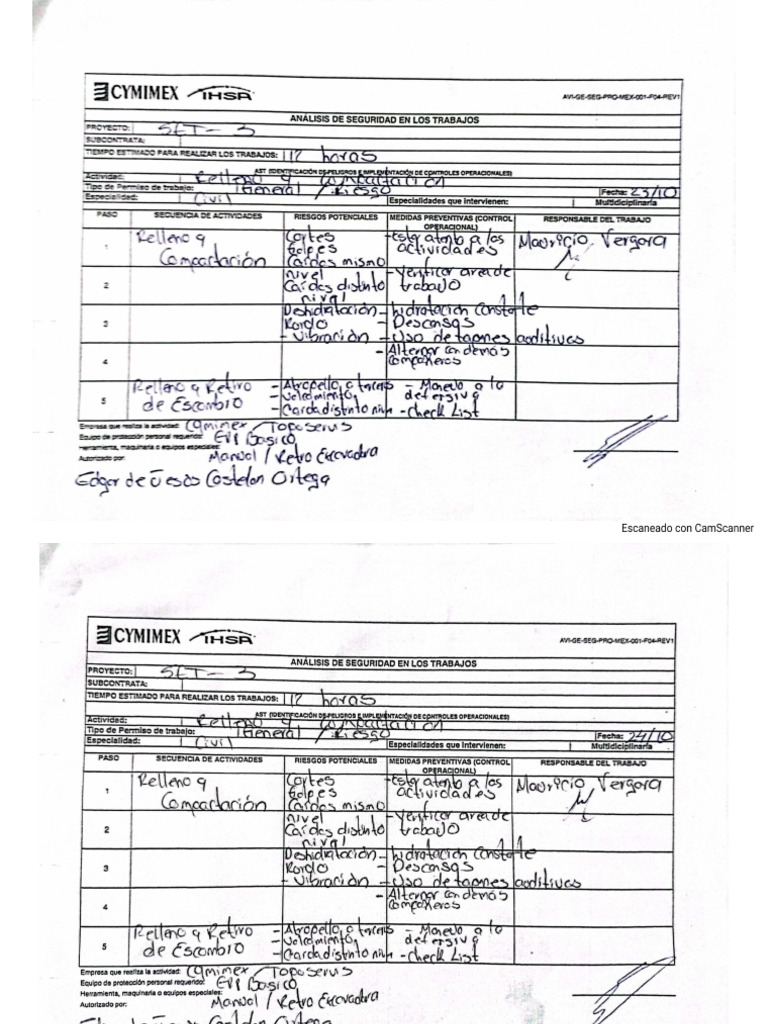 CYMIMEX IHSA
AVI-GE-SEG-PRO-MEX-001-F04-REV1
ANÁLISIS DE SEGURIDAD EN LOS TRABAJOS
PROYECTO: SET-3
SUBCONTRATA:
TIEMPO ESTIMADO PARA REALIZAR LOS TRABAJOS: 12 horas
AST (IDENTIFICACIÓN DE PELIGROS E IMPLEMENTACIÓN DE CONTROLES OPERACIONALES)
Actividad: Relleno y compactación
Tipo de Permiso de trabajo: General / Riesgo Fecha: 23/10
Especialidad: Civil Especialidades que intervienen: Multidiciplinaria
PASO SECUENCIA DE ACTIVIDADES RIESGOS POTENCIALES MEDIDAS PREVENTIVAS (CONTROL OPERACIONAL) RESPONSABLE DEL TRABAJO
1 Relleno y Cortes - Estar atento a las Mauricio Vergara
Compactación Golpes actividades
Caídas mismo
nivel - Verificar area de
2 Caídas distinto trabajo
nival
Deshidratación - hidratación Constate
3 Ruido - Descansos
- Vibración - Uso de tapones auditivos
4 - Alternar con demás
compañeros
5 Relleno y Retiro - Atropello a terceros - Manejo a la
de Escombro - Volcamiento defensiva
- Caida distinto nivn - check List
Empresa que realiza la actividad: Cymimex / Toposervis
Equipo de protección personal requerido: EPP Basico
Herramienta, maquinaria o equipos especiales: Manual / Retro Excavadora
Autorizado por:
Edgar de Jesus Castelan Ortega
Escaneado con CamScanner
CYMIMEX IHSA
AVI-GE-SEG-PRO-MEX-001-F04-REV1
ANÁLISIS DE SEGURIDAD EN LOS TRABAJOS
PROYECTO: SET-3
SUBCONTRATA:
TIEMPO ESTIMADO PARA REALIZAR LOS TRABAJOS: 12 horas
AST (IDENTIFICACIÓN DE PELIGROS E IMPLEMENTACIÓN DE CONTROLES OPERACIONALES)
Actividad: Relleno y compactación
Tipo de Permiso de trabajo: General / Riesgo Fecha: 24/10
Especialidad: Civil Especialidades que intervienen: Multidiciplinaria
PASO SECUENCIA DE ACTIVIDADES RIESGOS POTENCIALES MEDIDAS PREVENTIVAS (CONTROL OPERACIONAL) RESPONSABLE DEL TRABAJO
1 Relleno y Cortes - Estar atento a las Mauricio Vergara
Compactación Golpes actividades
Caídas mismo
nivel - Verificar area de
2 Caídas distinto trabajo
nival
Deshidratación - hidratación Constate
3 Ruido - Descansos
- Vibración - Uso de tapones auditivos
4 - Alternar con demás
compañeros
5 Relleno y Retiro - Atropello a terceros - Manejo a la
de Escombro - Volcamiento defensiva
- Caida distinto nivn - check List
Empresa que realiza la actividad: Cymimex / Toposervis
Equipo de protección personal requerido: EPP Basico
Herramienta, maquinaria o equipos especiales: Manual / Retro Excavadora
Autorizado por: